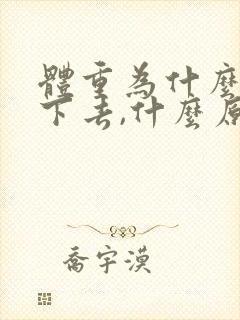 體重為什麼
下去,什麼原
喬宇漠